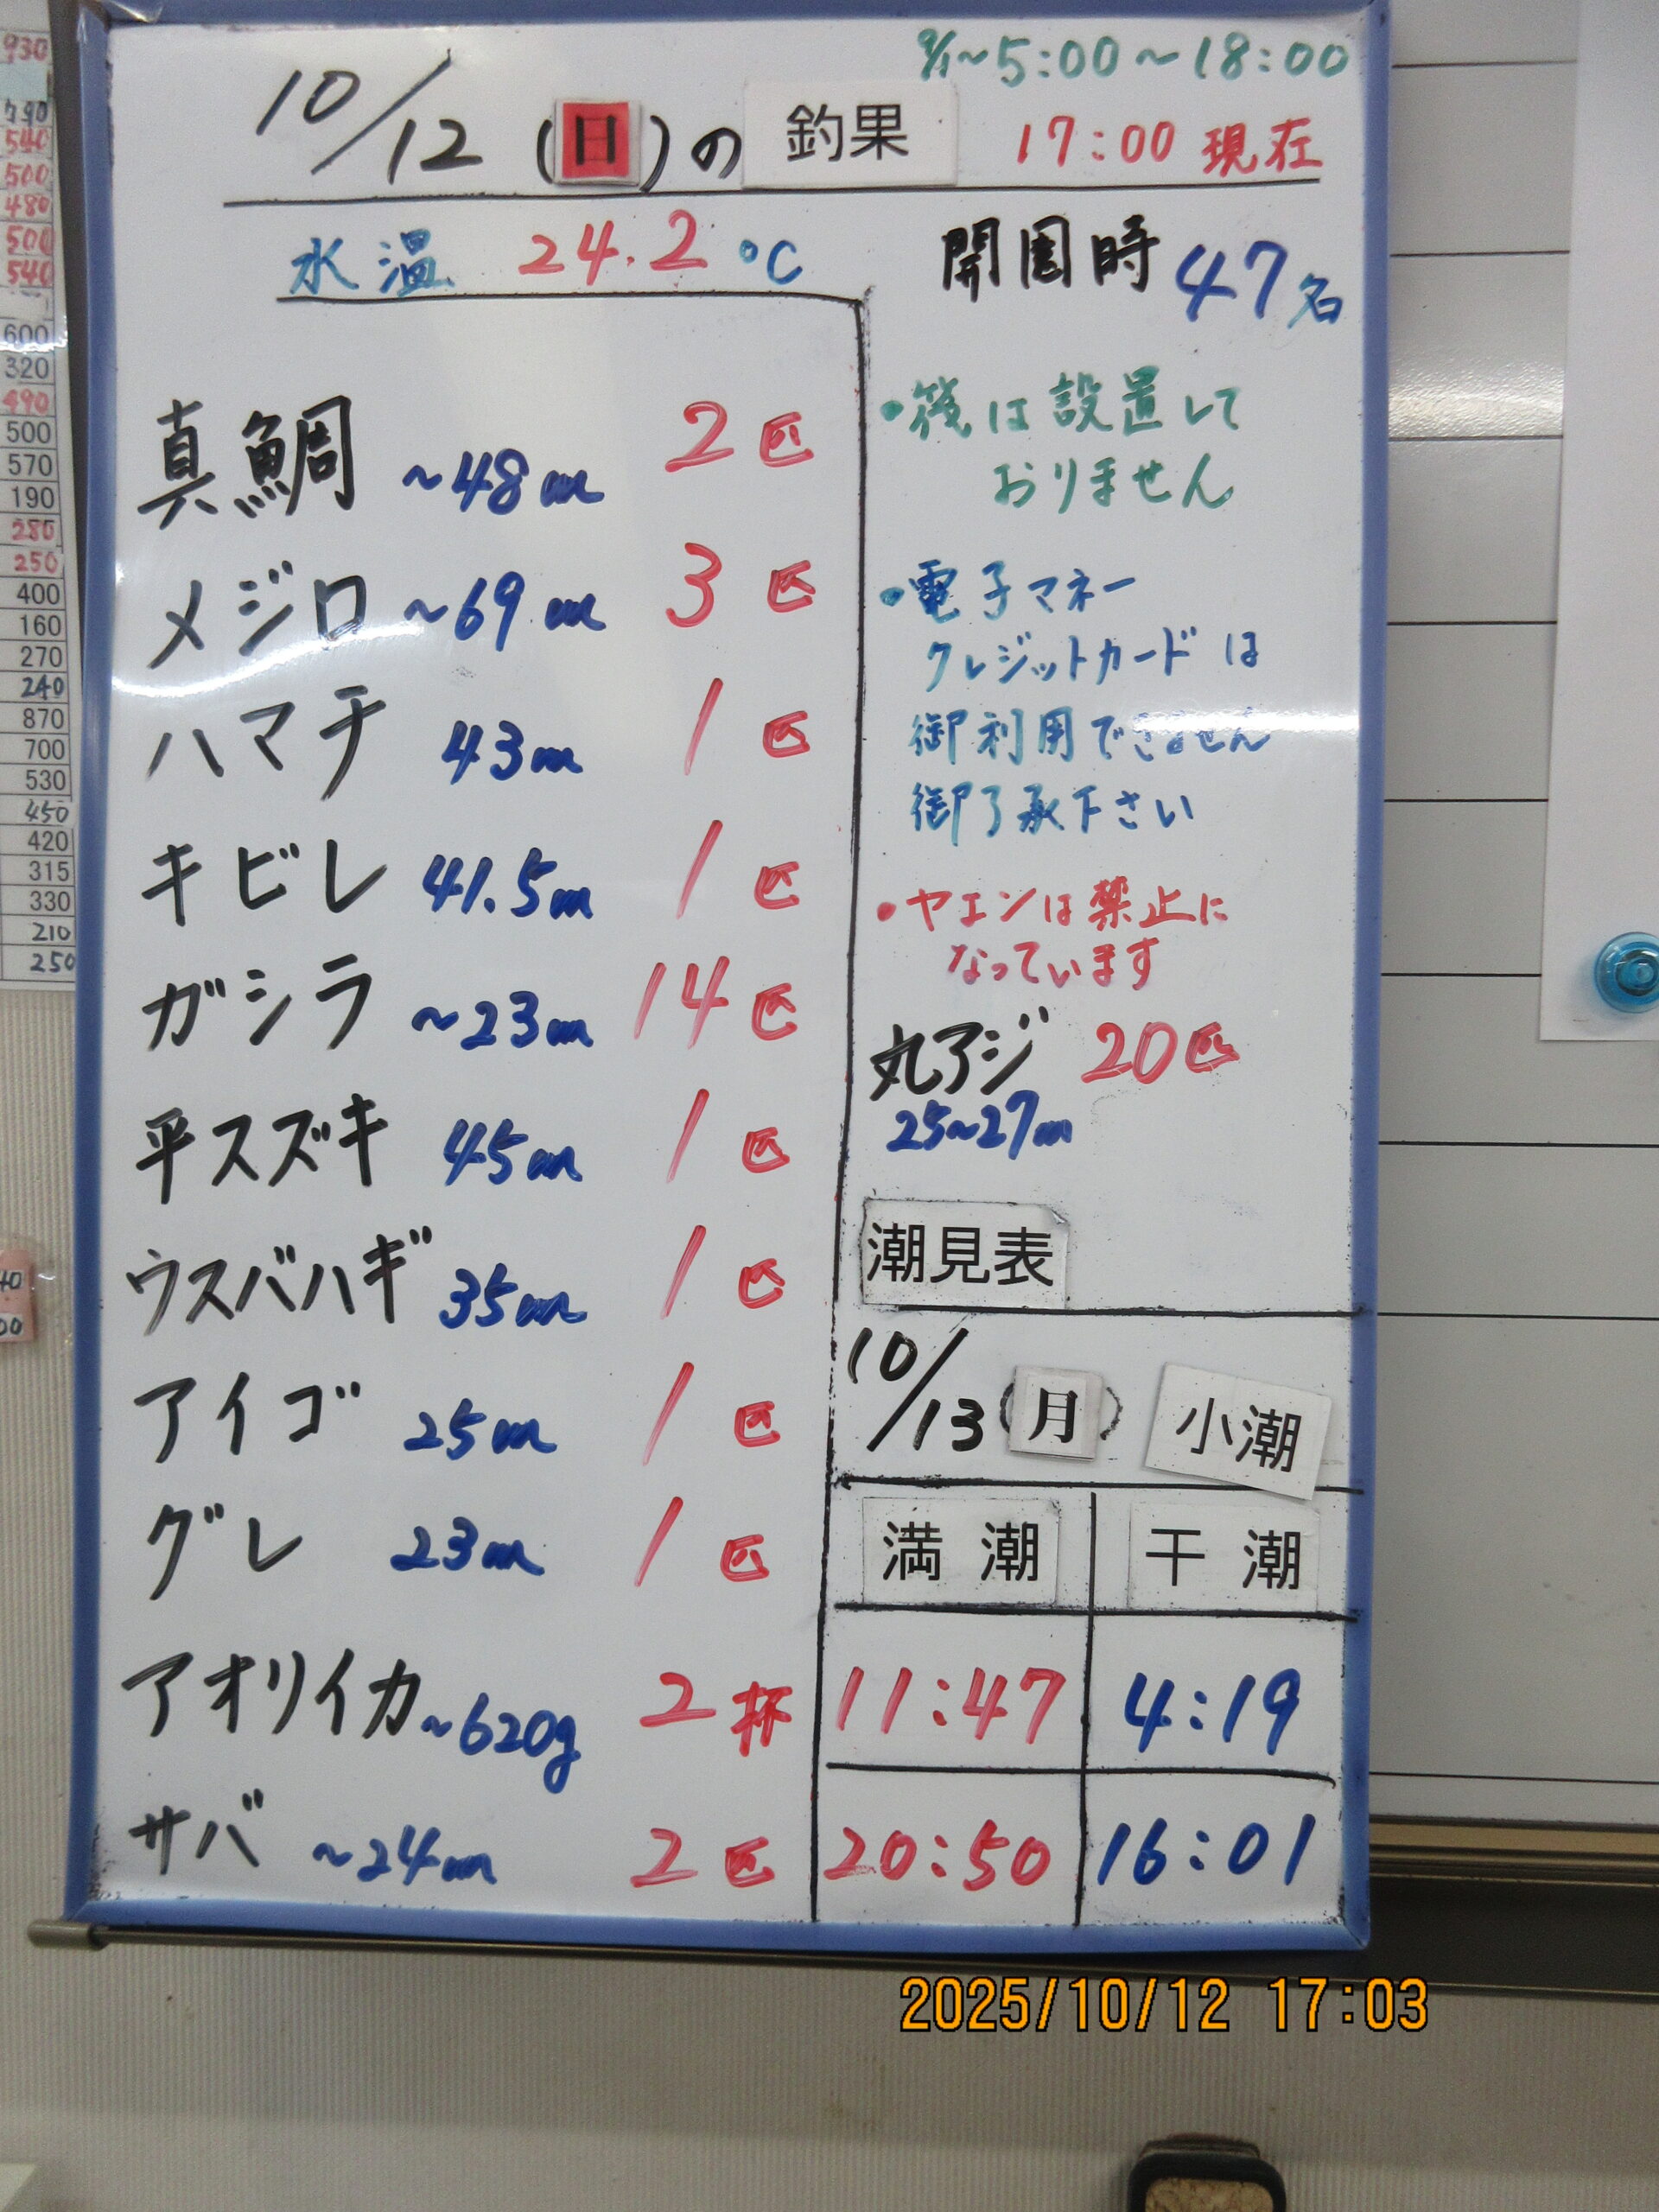 9/1~5:00~18:00
10/12(日)の 釣果 17:00 現在
水温 24.2 ℃ 開園時 47名
真鯛 ~48㎝ 2匹
メジロ ~69㎝ 3匹
ハマチ 43㎝ 1匹
キビレ 41.5㎝ 1匹
ガシラ ~23㎝ 14匹
平スズキ 45㎝ 1匹
ウスバハギ 35㎝ 1匹
アイゴ 25㎝ 1匹
グレ 23㎝ 1匹
アオリイカ ~620g 2杯
サバ ~24㎝ 2匹
・筏は設置して
おりません
・電子マネー
クレジットカードは
御利用できません
御了承下さい
・ヤエンは禁止に
なっています
丸アジ 20匹
25~27㎝
潮見表
10/13(月) 小潮
満潮 干潮
11:47 4:19
20:50 16:01
2025/10/12 17:03
930
790
540
500
480
500
540
600
320
490
500
570
190
280
250
400
160
270
240
870
700
530
450
420
315
330
210
250